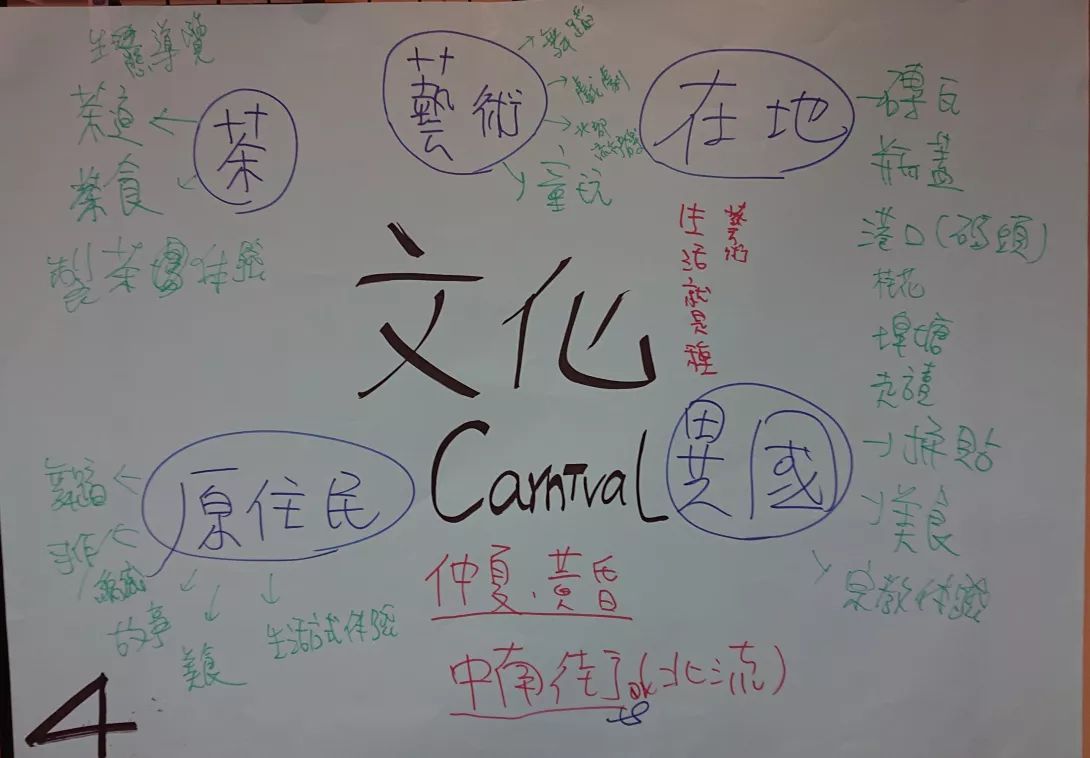 生態導覽
茶道
茶
茶食
製茶 體驗
藝術
舞蹈
戲劇
童玩
在地
磚瓦
瓶蓋
港口(码頭)
桂花
埤塘
古蹟
生活就是種
藝術
文化
Carnival
異國
拼貼
美食
宗教体驗
原住民
舞蹈
手作
故事
美食
生活式体驗
仲夏.黃昏
中南街
(北流)
4